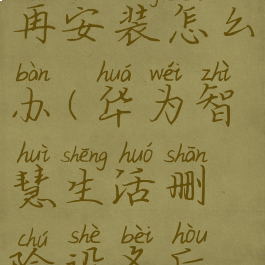 再安装怎么
bàn huá wéi zhì
办(华为智
huì shēng huó shān
慧生活删
chú shè bèi hòu
除设备后